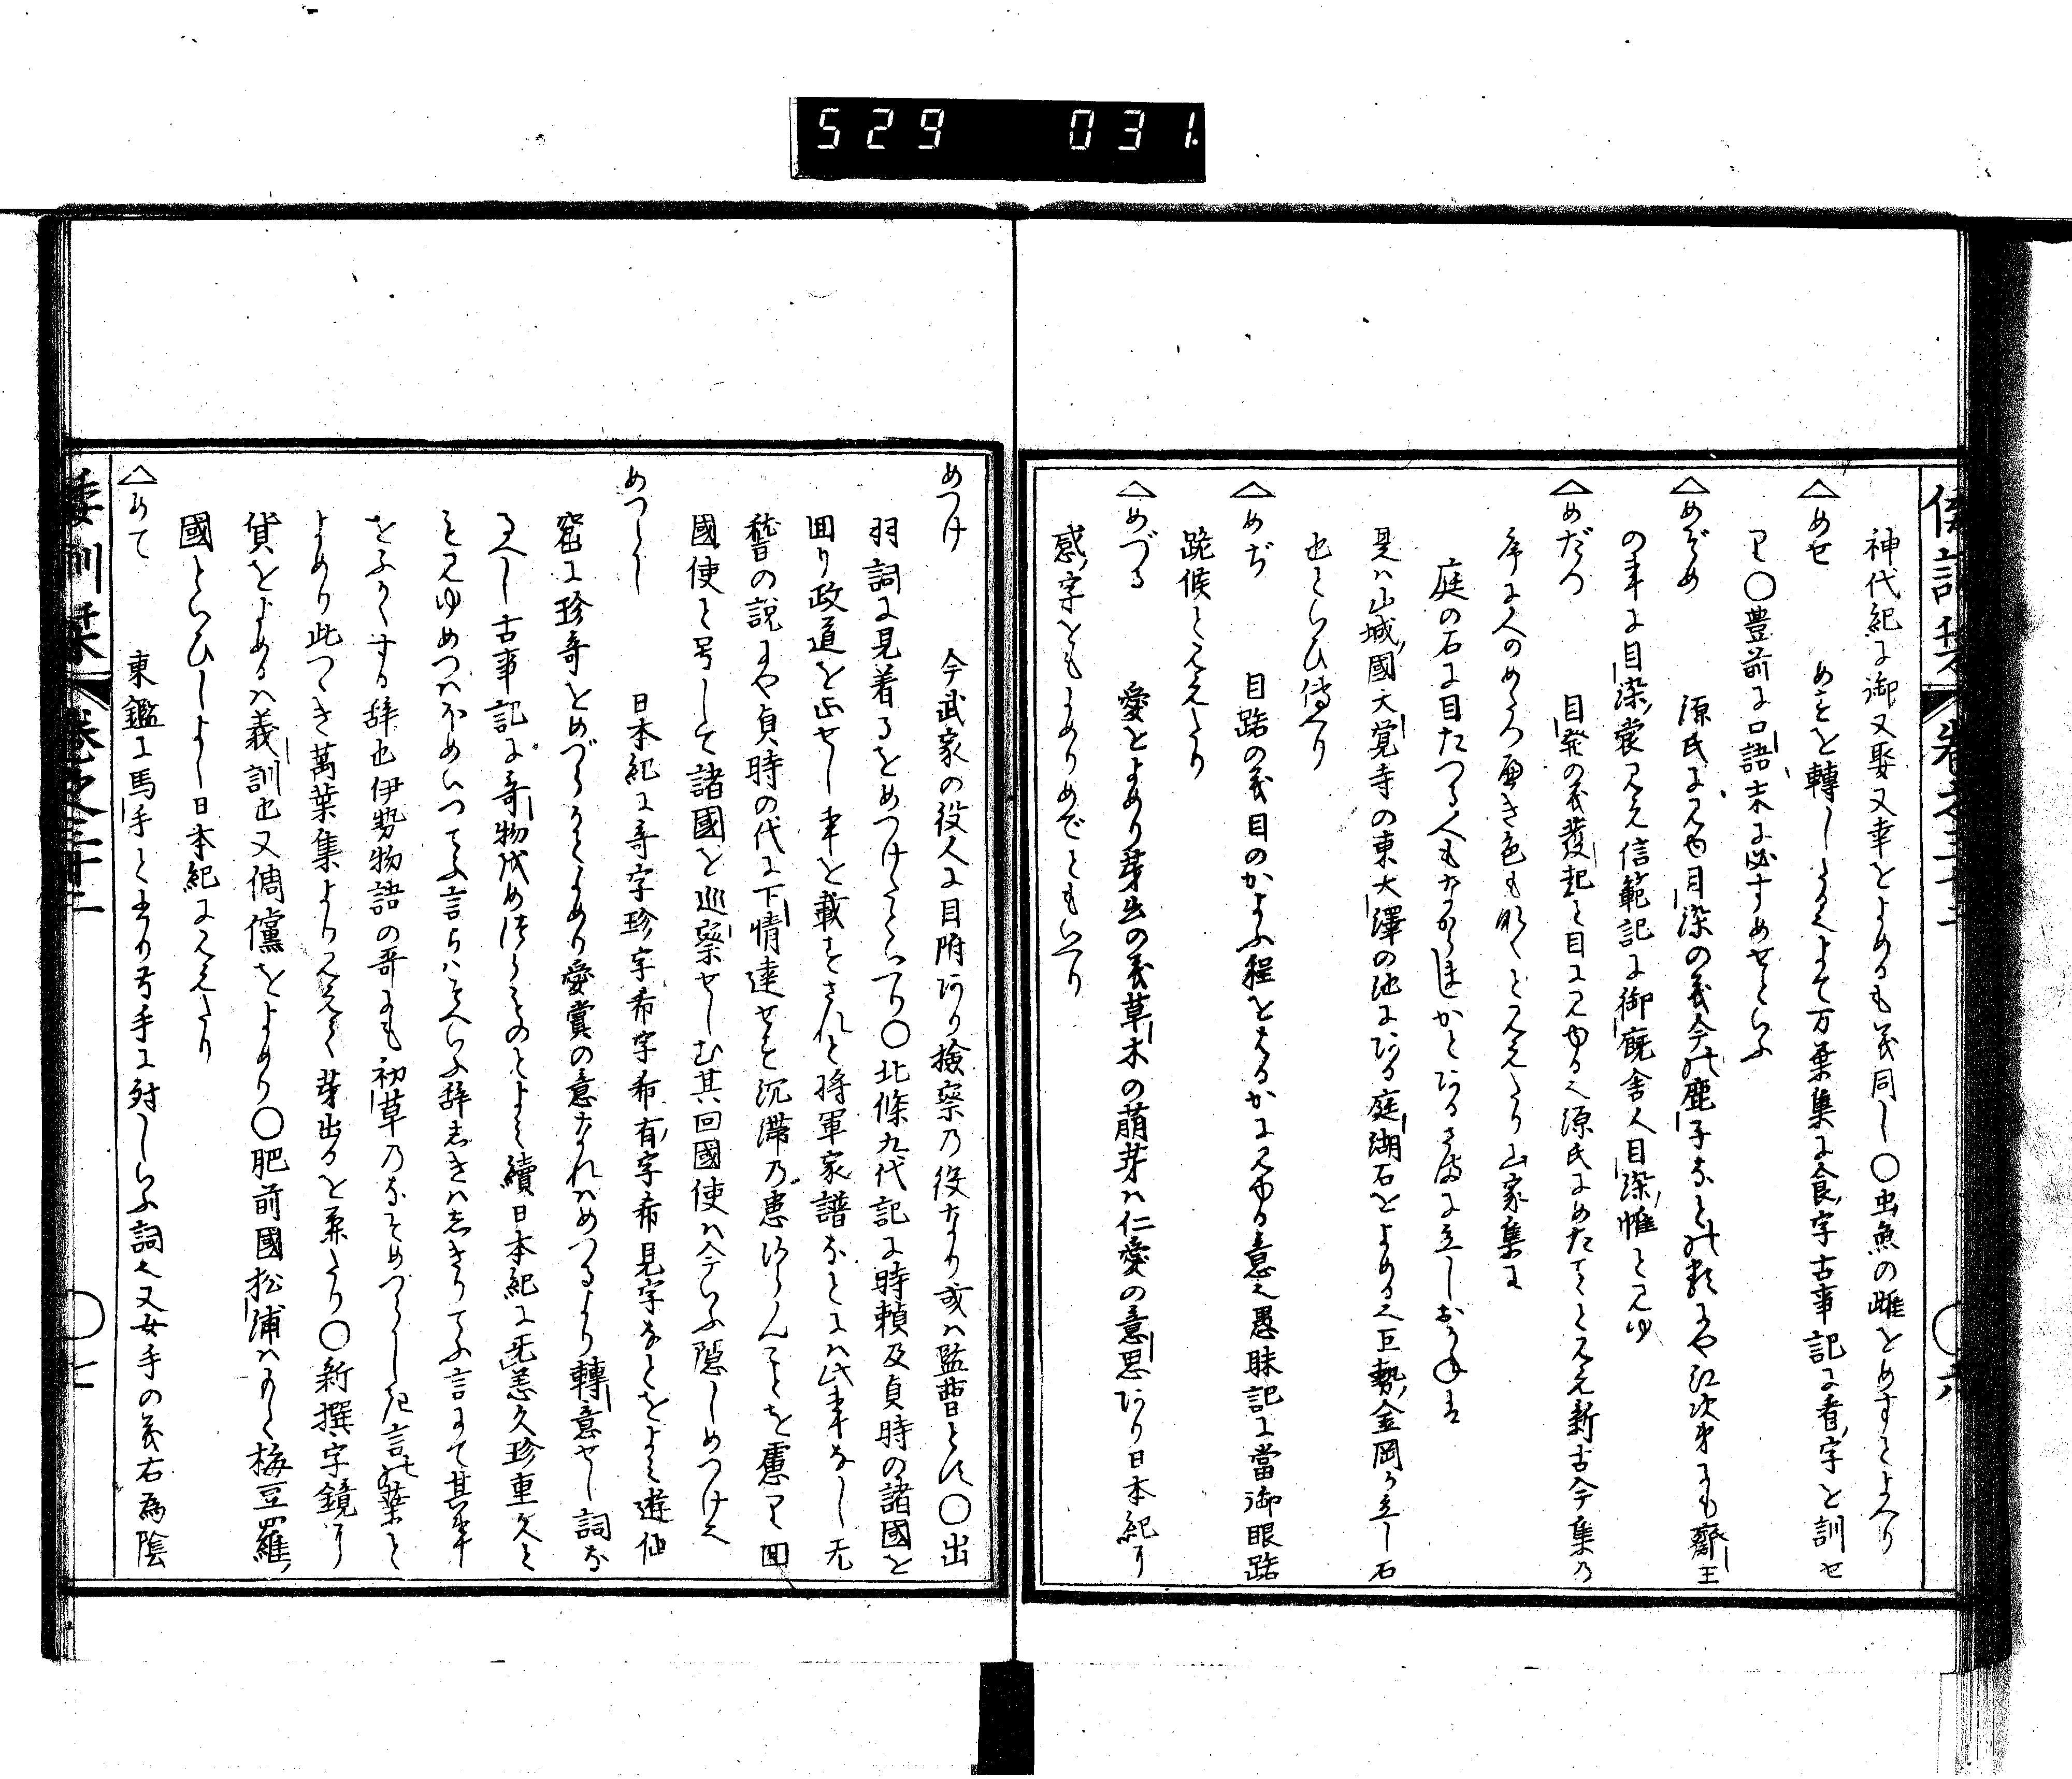 529 031
神代紀に御又娶又幸をよめるも義同し〇虫魚の雌をめすとよへり
△めせ めせを轉したる也よて万葉集に食字古事記に看字を訓せ
り〇豊前に口語末に必すめせといふ
△めぞめ 源氏に見ゆ目染の義今の鹿子なとの類にや江次第にも齋王
の車に目染裳見え信範記に御厩舎人目染帷と見ゆ
△めだつ 目発の義發起と目に見ゆる也源氏にめたてと見え新古今集の
序に人のめたつへき色もなくと見えたり山家集に
庭の石に目たつる人もなからましかとある さまに立しおかねは
是ハ山城國大覚寺の東大澤の池にある庭湖石をよめる也巨勢金岡か立し石
也といひ傳へり
△めぢ 目路の義目のかよふ程をはるかに見ゆる意也愚昧記に當御眼路
跪候と見えたり
△めづる 愛をよめり芽出の義草木の萠芽ハ仁愛の意思あり日本紀に
感字をもよめりめでともいへり
めつけ 今武家の役人に目附あり撿察の役なり或ハ監曹とす〇出
羽詞に見着るをめつけたといへり〇北條九代記に時頼及貞時の諸國を
囬り政道を正せし事を載せされと将軍家譜なとにハ此事なし无
稽の説にや貞時の代に下情達せす沉滞の患あらんことを慮り囬
國使と号して諸國を巡察せしむ其回國使ハ今いふ隠しめつけ也
めつらし 日本紀に奇字珍字希字希有字希見字なとをよみ遊仙
窟に珍奇をめづらかとよめり愛賞の意なれハめつるより轉意せし詞な
るへし古事記に奇物をめつらしきものとよみ續日本紀に无恙久珍重久と
も見ゆめつハほめいつてふ言らハそへいふ辞しきハしきりてふ言にて其事
をふかくする辞也伊勢物語の哥にも初草のなとめつらしき言の葉と
よめり此つゝき萬葉集より見えて芽出るを兼たり〇新撰字鏡に
貨をよめるハ義訓也又倜儻をよめり〇肥前國松浦ハもと梅豆羅
國といひしよし日本紀に見えたり
△めて 東鑑に馬手と書り弓手に對しいふ詞也又女手の義右為陰
倭訓栞 巻之三十二 〇六
倭訓栞 巻之三十二 〇七